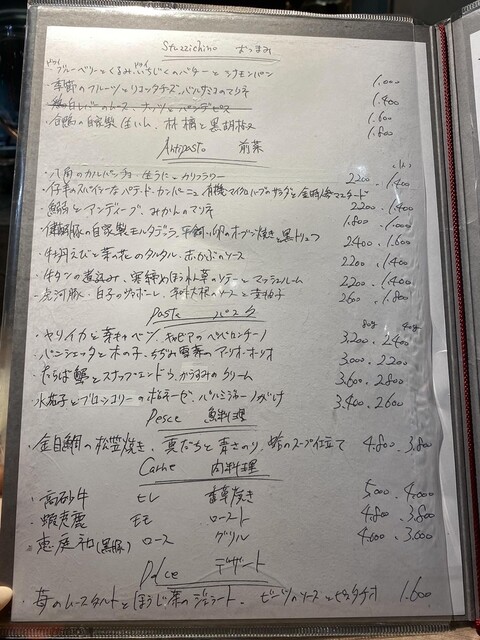 Stuzzichino おつまみ
ドライ ドライ
・ブルーベリーとくるみ、いちじくのバターとシナモンパン 1.000
・季節のフルーツとリコッタチーズ、バルサミコのマリネ 1.400
白レバーのムース、ナッツとパンデピス 1.600
・合鴨の自家製生ハム、林檎と黒胡椒 1.800
Antipasto 前菜
・八角のカルパッチョ、生うにとカリフラワー 2200 . 1.400
・仔羊のスパイシーなパテ・ド・カンパーニュ 有機マイクロハーブのサラダと金時人参マスタード 2200 . 1.400
・鰯とアンディーブ、みかんのマリネ 1.800 . 1.000
・健酵豚の自家製モルタデッラ、平飼い卵のオーブン焼きと黒トリュフ 2400 . 1.600
・牡丹えびと菜の花のタルタル、赤かぶのソース 2200 . 1.400
・牛タンの煮込み、寒締めほうれん草のソテーとマッシュルーム 2200 . 1.400
・虎河豚、白子の 大根のソースと黄柚子 2600 . 1.800
Pasta パスタ 80g 40g
・ヤリイカと芽キャベツ、キャビアのペペロンチーノ 3.200 . 2400
・パンシェッタと木の子、ちぢみ雪菜のアーリオ・オーリオ 3.000 . 2200
・たらば蟹とスナップエンドウ、からすみのクリーム 3.600 . 2800
・水茄子とブロッコリーのボロネーゼ、パルミジャーノがけ 3.400 . 2600
Pesce 魚料理
・金目鯛の松笠焼き、真だちと青さのり、蛤のスープ仕立て 4.800 . 3.800
Carne 肉料理
・高砂牛 ヒレ 香草焼き 5000 . 4.000
・蝦夷鹿 モモ ロースト 4.800 . 3.800
・恵庭和(黒豚) ロース グリル 4.600 . 3.600
Dolce デザート
・苺のムースタルトとほうじ茶のジェラート、ビーツのソースとピスタチオ 1.600